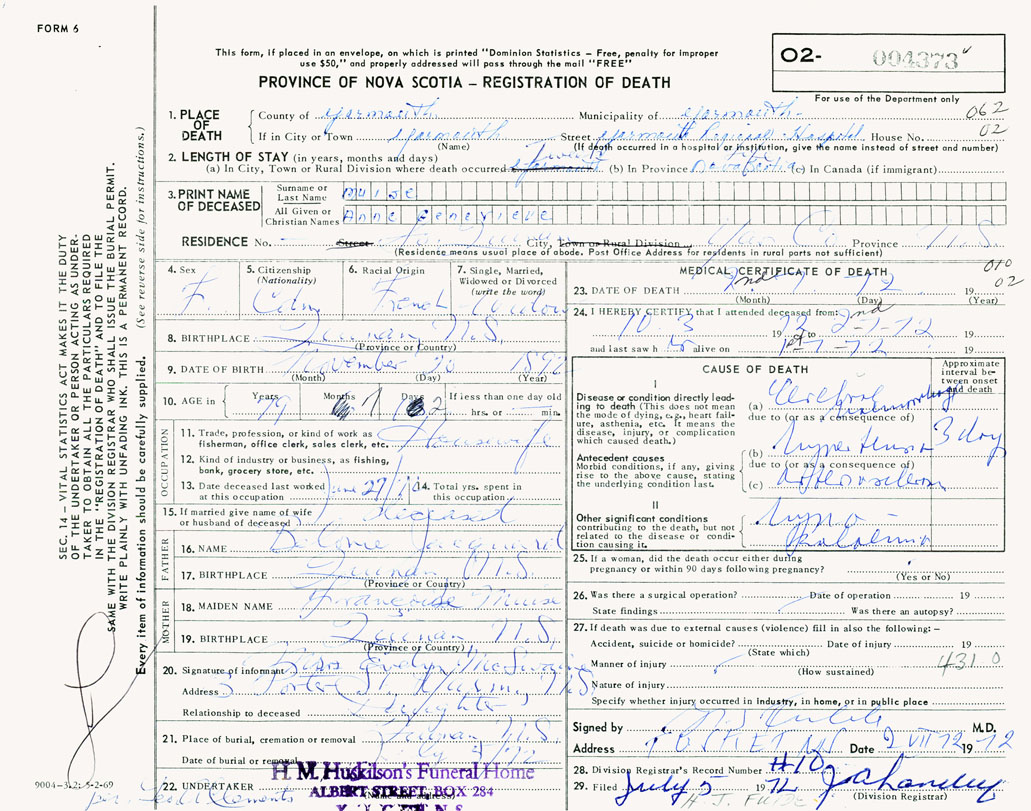 FORM 6
This form, if placed in an envelope, on which is printed "Dominion Statistics – Free, penalty for improper
use $50," and properly addressed will pass through the mail "FREE"
PROVINCE OF NOVA SCOTIA – REGISTRATION OF DEATH
O2- 004373
For use of the Department only
062
02
1. PLACE OF DEATH
County of Yarmouth Municipality of Yarmouth
If in City or Town Yarmouth Street Yarmouth Regional Hospital House No.
(Name) (If death occurred in a hospital or institution, give the name instead of street and number)
2. LENGTH OF STAY (in years, months and days)
(a) In City, Town or Rural Division where death occurred (b) In Province Nova Scotia (c) In Canada (if immigrant)
3. PRINT NAME OF DECEASED
Surname or Last Name MUISE
All Given or Christian Names Anne Genevieve
RESIDENCE No. Street City, Town or Rural Division Yar. Co. Province N.S.
(Residence means usual place of abode. Post Office Address for residents in rural parts not sufficient)
4. Sex F.
5. Citizenship (Nationality) Cdn
6. Racial Origin French
7. Single, Married, Widowed or Divorced (write the word) Widow
8. BIRTHPLACE Quinan N.S.
(Province or Country)
9. DATE OF BIRTH November 30 1892
(Month) (Day) (Year)
10. AGE in Years 79 Months 7 Days 2 If less than one day old hrs. or min.
OCCUPATION
11. Trade, profession, or kind of work as fisherman, office clerk, sales clerk, etc. Housewife
12. Kind of industry or business, as fishing, bank, grocery store, etc.
13. Date deceased last worked at this occupation June 27/71 14. Total yrs. spent in this occupation
15. If married give name of wife or husband of deceased deceased
FATHER
16. NAME Jacquard
17. BIRTHPLACE Quinan N.S.
(Province or Country)
MOTHER
18. MAIDEN NAME Françoise Muise
19. BIRTHPLACE Quinan N.S.
(Province or Country)
20. Signature of informant Evelyn
Address 3 Porter St. N.S.
Relationship to deceased Daughter
21. Place of burial, cremation or removal Quinan N.S.
Date of burial or removal July 4/72
22. UNDERTAKER
(Name and address)
H. M. Huskilson's Funeral Home
ALBERT STREET, BOX 284
9004-3.2: 5-2-69
MEDICAL CERTIFICATE OF DEATH
010
02
23. DATE OF DEATH 2nd 7 72 19
(Month) (Day) (Year)
24. I HEREBY CERTIFY that I attended deceased from:
10.3 1972 to 2nd-7-72 19
and last saw h alive on 1st-7-72 19
CAUSE OF DEATH
Approximate interval between onset and death
I
Disease or condition directly leading to death (This does not mean the mode of dying, e.g., heart failure, asthenia, etc. It means the disease, injury, or complication which caused death.)
(a) Cerebral haemorrhage
due to (or as a consequence of)
3 day
Antecedent causes
Morbid conditions, if any, giving rise to the above cause, stating the underlying condition last.
(b) hypertension
due to (or as a consequence of)
(c)
II
Other significant conditions contributing to the death, but not related to the disease or condition causing it.
hypo-
25. If a woman, did the death occur either during pregnancy or within 90 days following pregnancy?
(Yes or No)
26. Was there a surgical operation? Date of operation 19
State findings Was there an autopsy?
27. If death was due to external causes (violence) fill in also the following: –
Accident, suicide or homicide? Date of injury 19
(State which)
Manner of injury 431 0
(How sustained)
Nature of injury
Specify whether injury occurred in industry, in home, or in public place
Signed by M.D.
Address Date 2 VII 72 19 72
28. Division Registrar's Record Number #10
29. Filed July 5 1972
(Division Registrar)
SEC. 14 – VITAL STATISTICS ACT MAKES IT THE DUTY
OF THE UNDERTAKER OR PERSON ACTING AS UNDER-
TAKER TO OBTAIN ALL THE PARTICULARS REQUIRED
IN THE "REGISTRATION OF DEATH" AND TO FILE THE
SAME WITH THE DIVISION REGISTRAR WHO SHALL ISSUE THE BURIAL PERMIT.
WRITE PLAINLY WITH UNFADING INK. THIS IS A PERMANENT RECORD.
Every item of information should be carefully supplied. (See reverse side for instructions.)